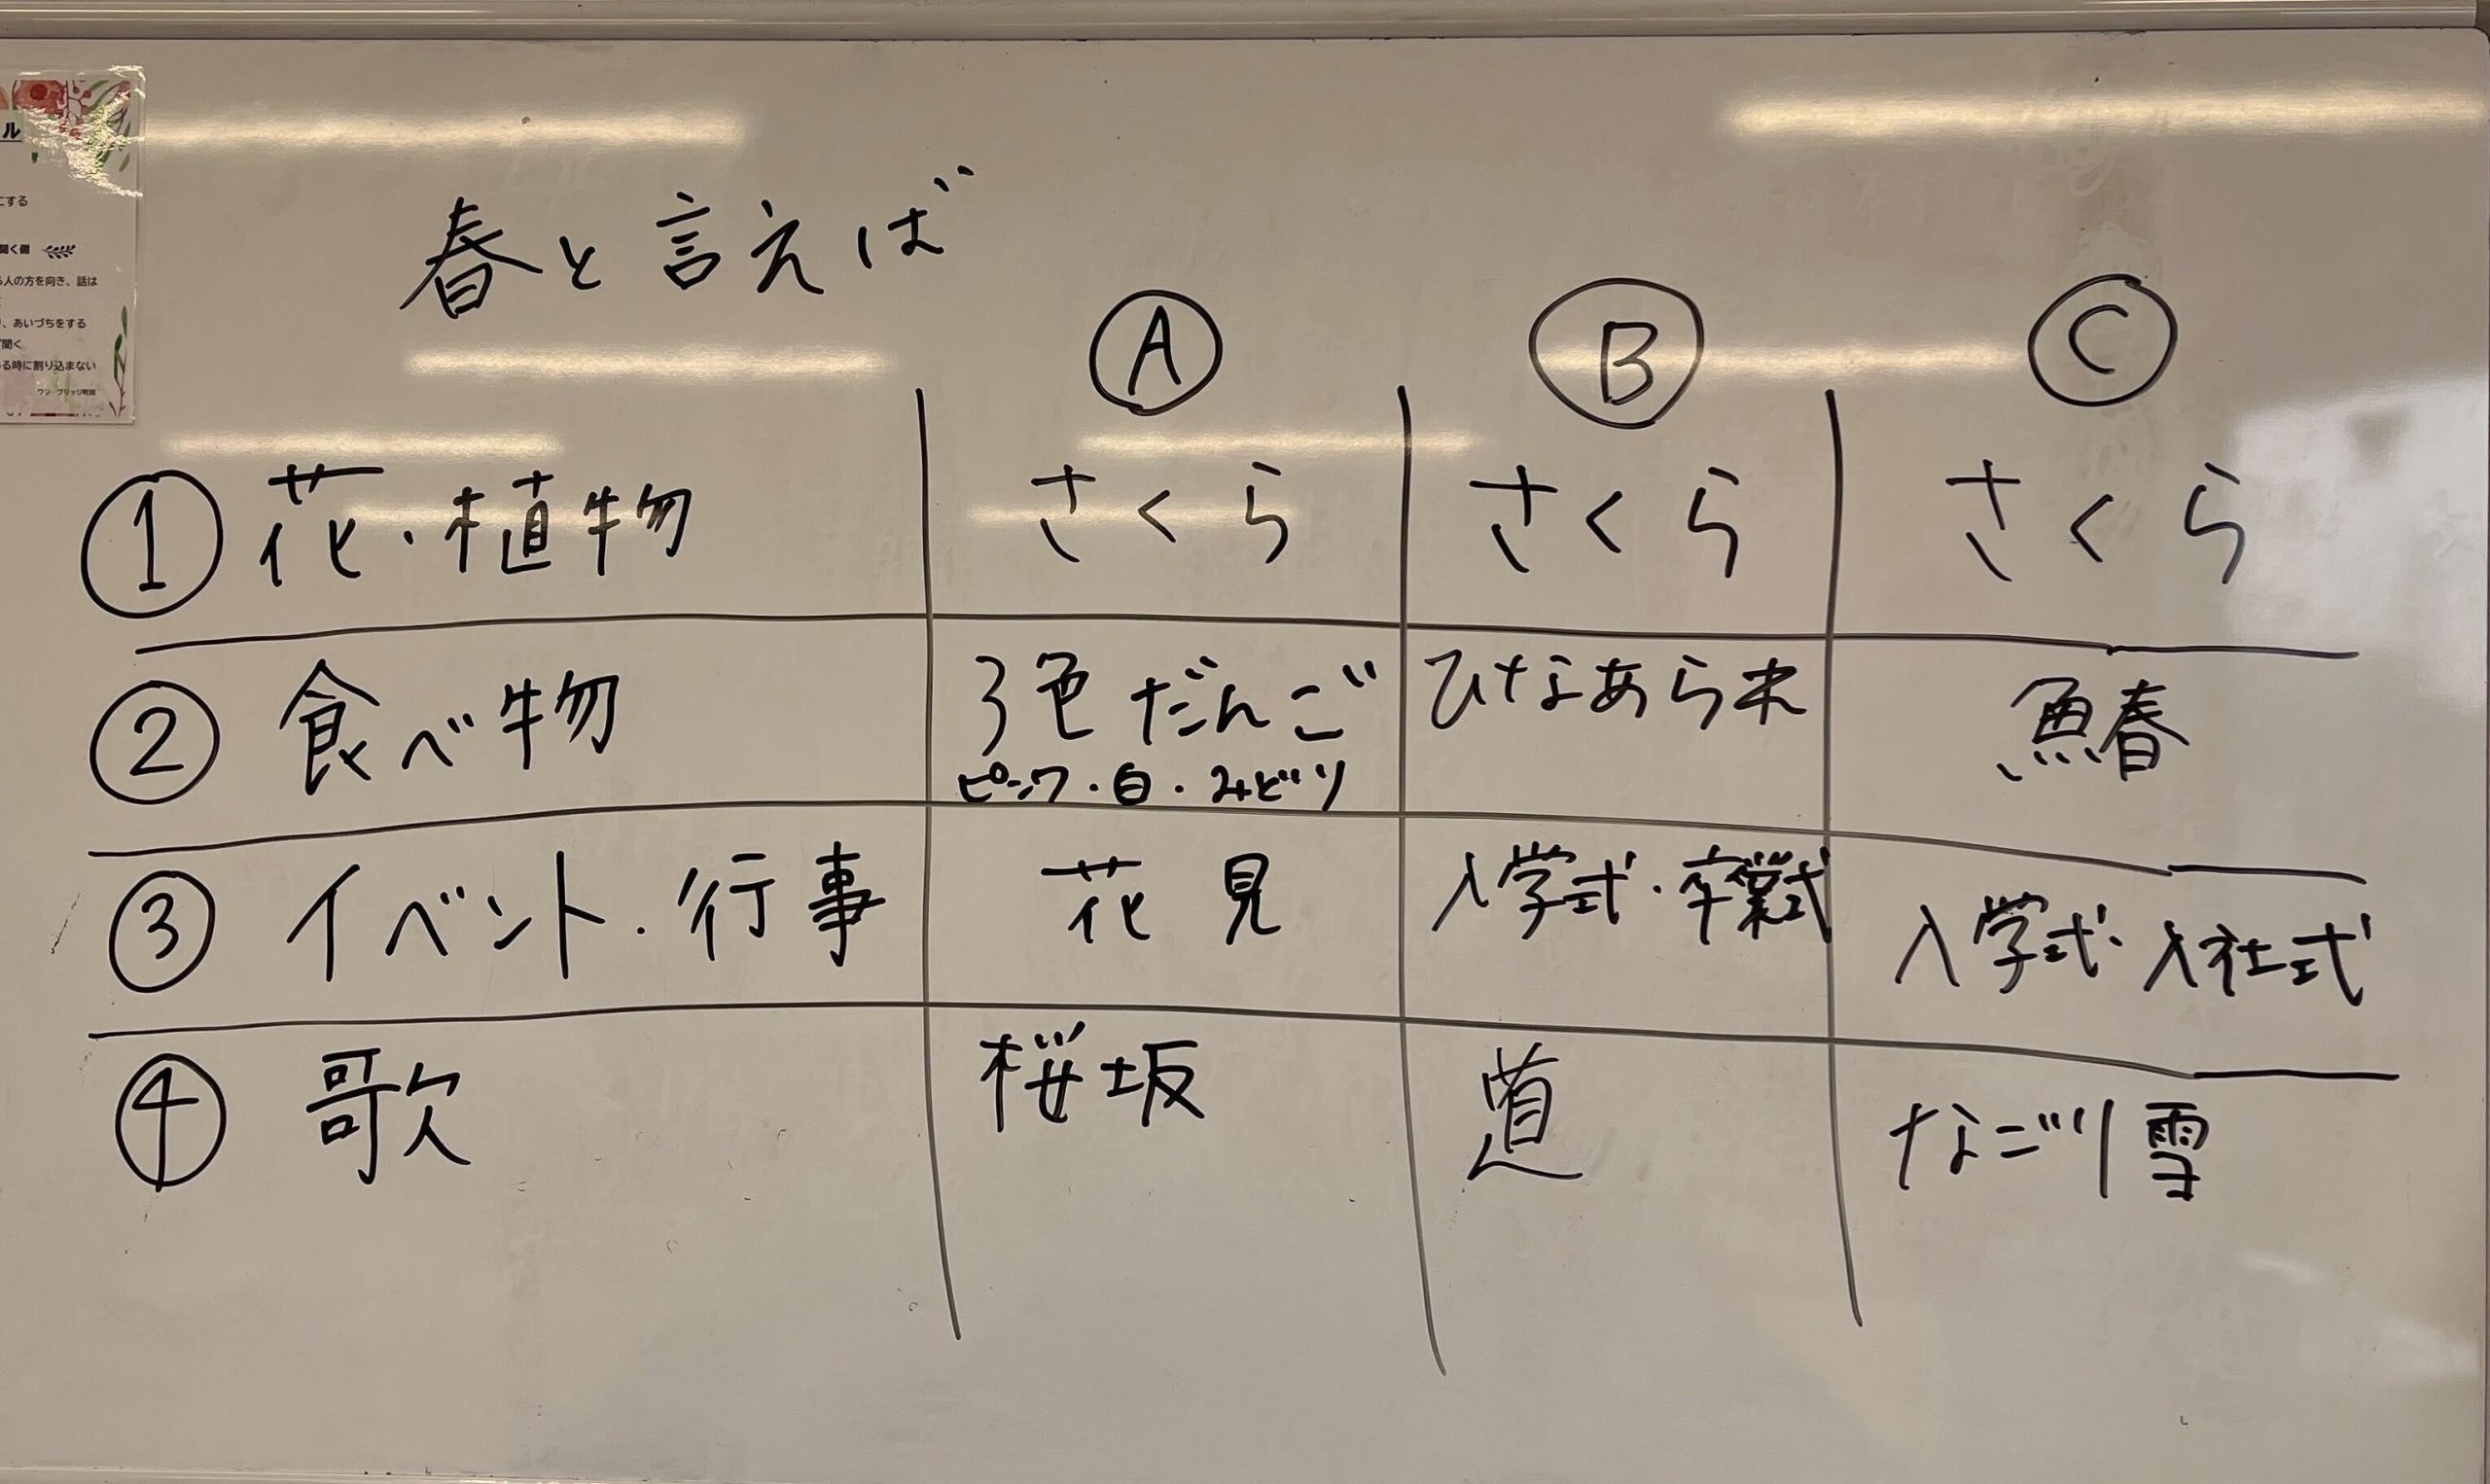 ル
にする
聞く側
る人の方を向き、話は
、あいづちをする
聞く
る時に割り込まない
春と言えば
Ⓐ Ⓑ Ⓒ
① 花・植物 さくら さくら さくら
② 食べ物 3色だんご ひなあられ 鰆
ピンク・白・みどり
③ イベント・行事 花見 入学式・卒業式 入学式・入社式
④ 歌 桜坂 道 なごり雪